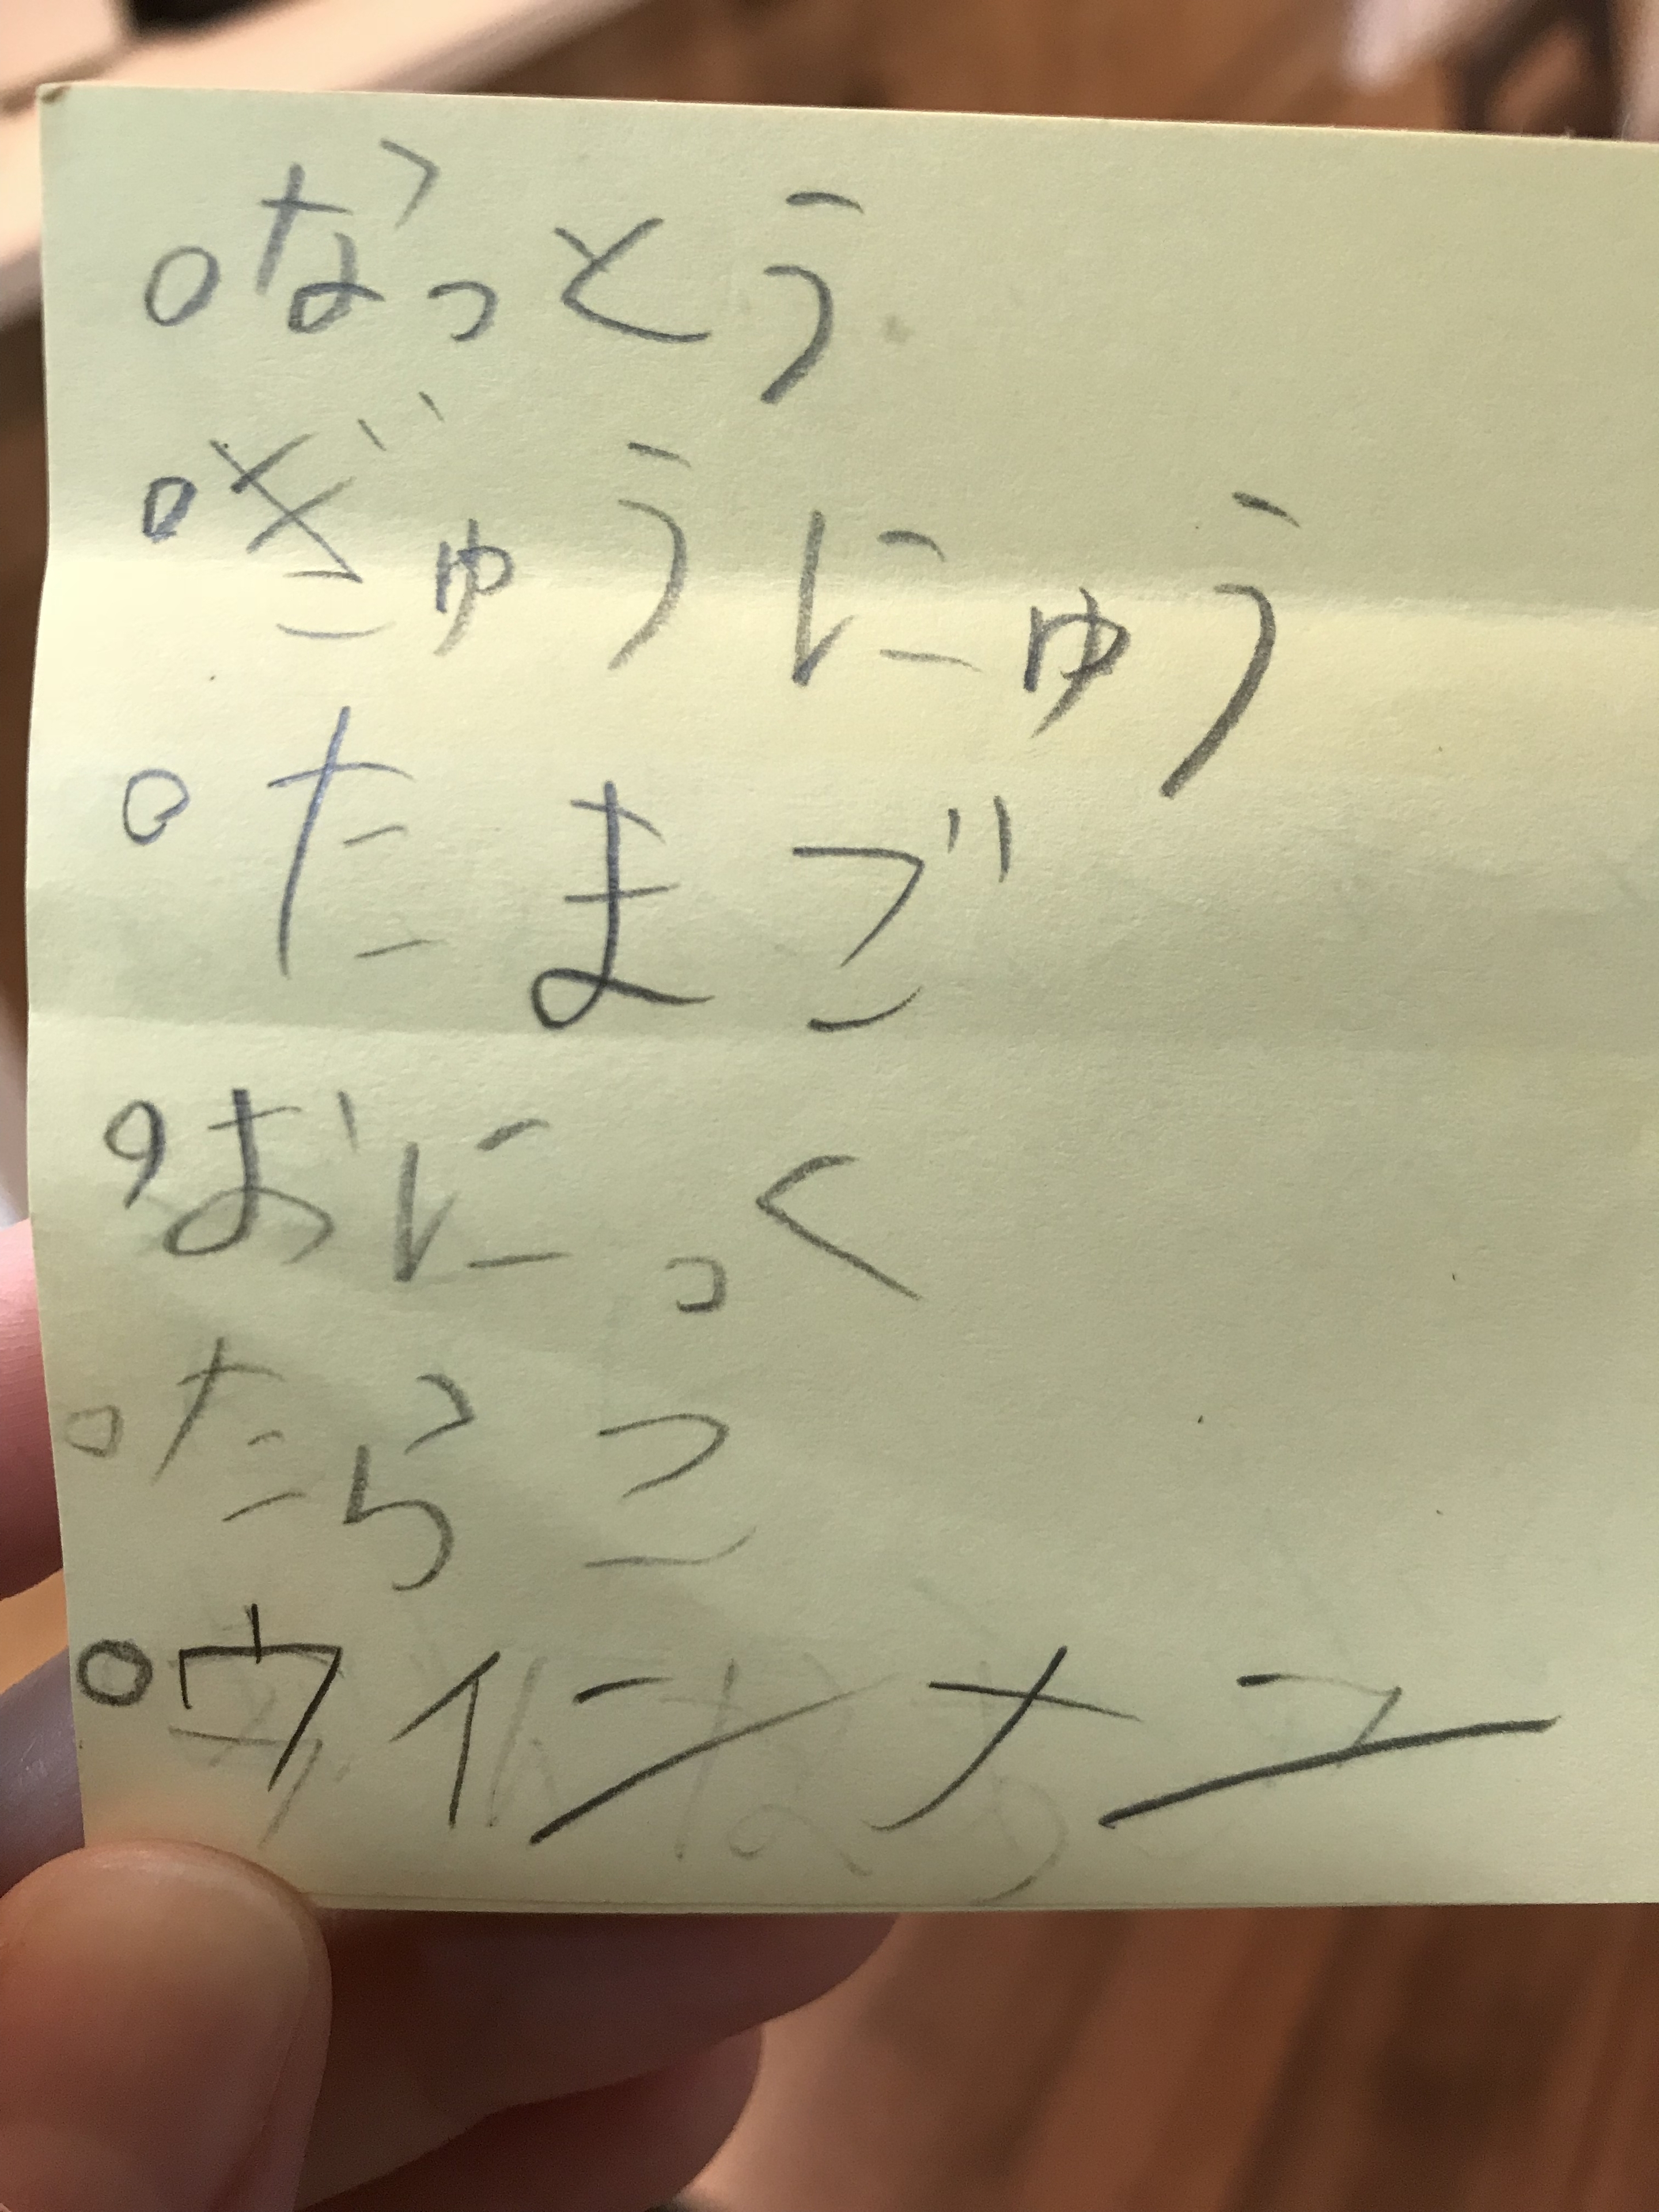 ○なっとう
○ぎゅうにゅう
○たまご
○おにっく
○たらこ
○ウインナー